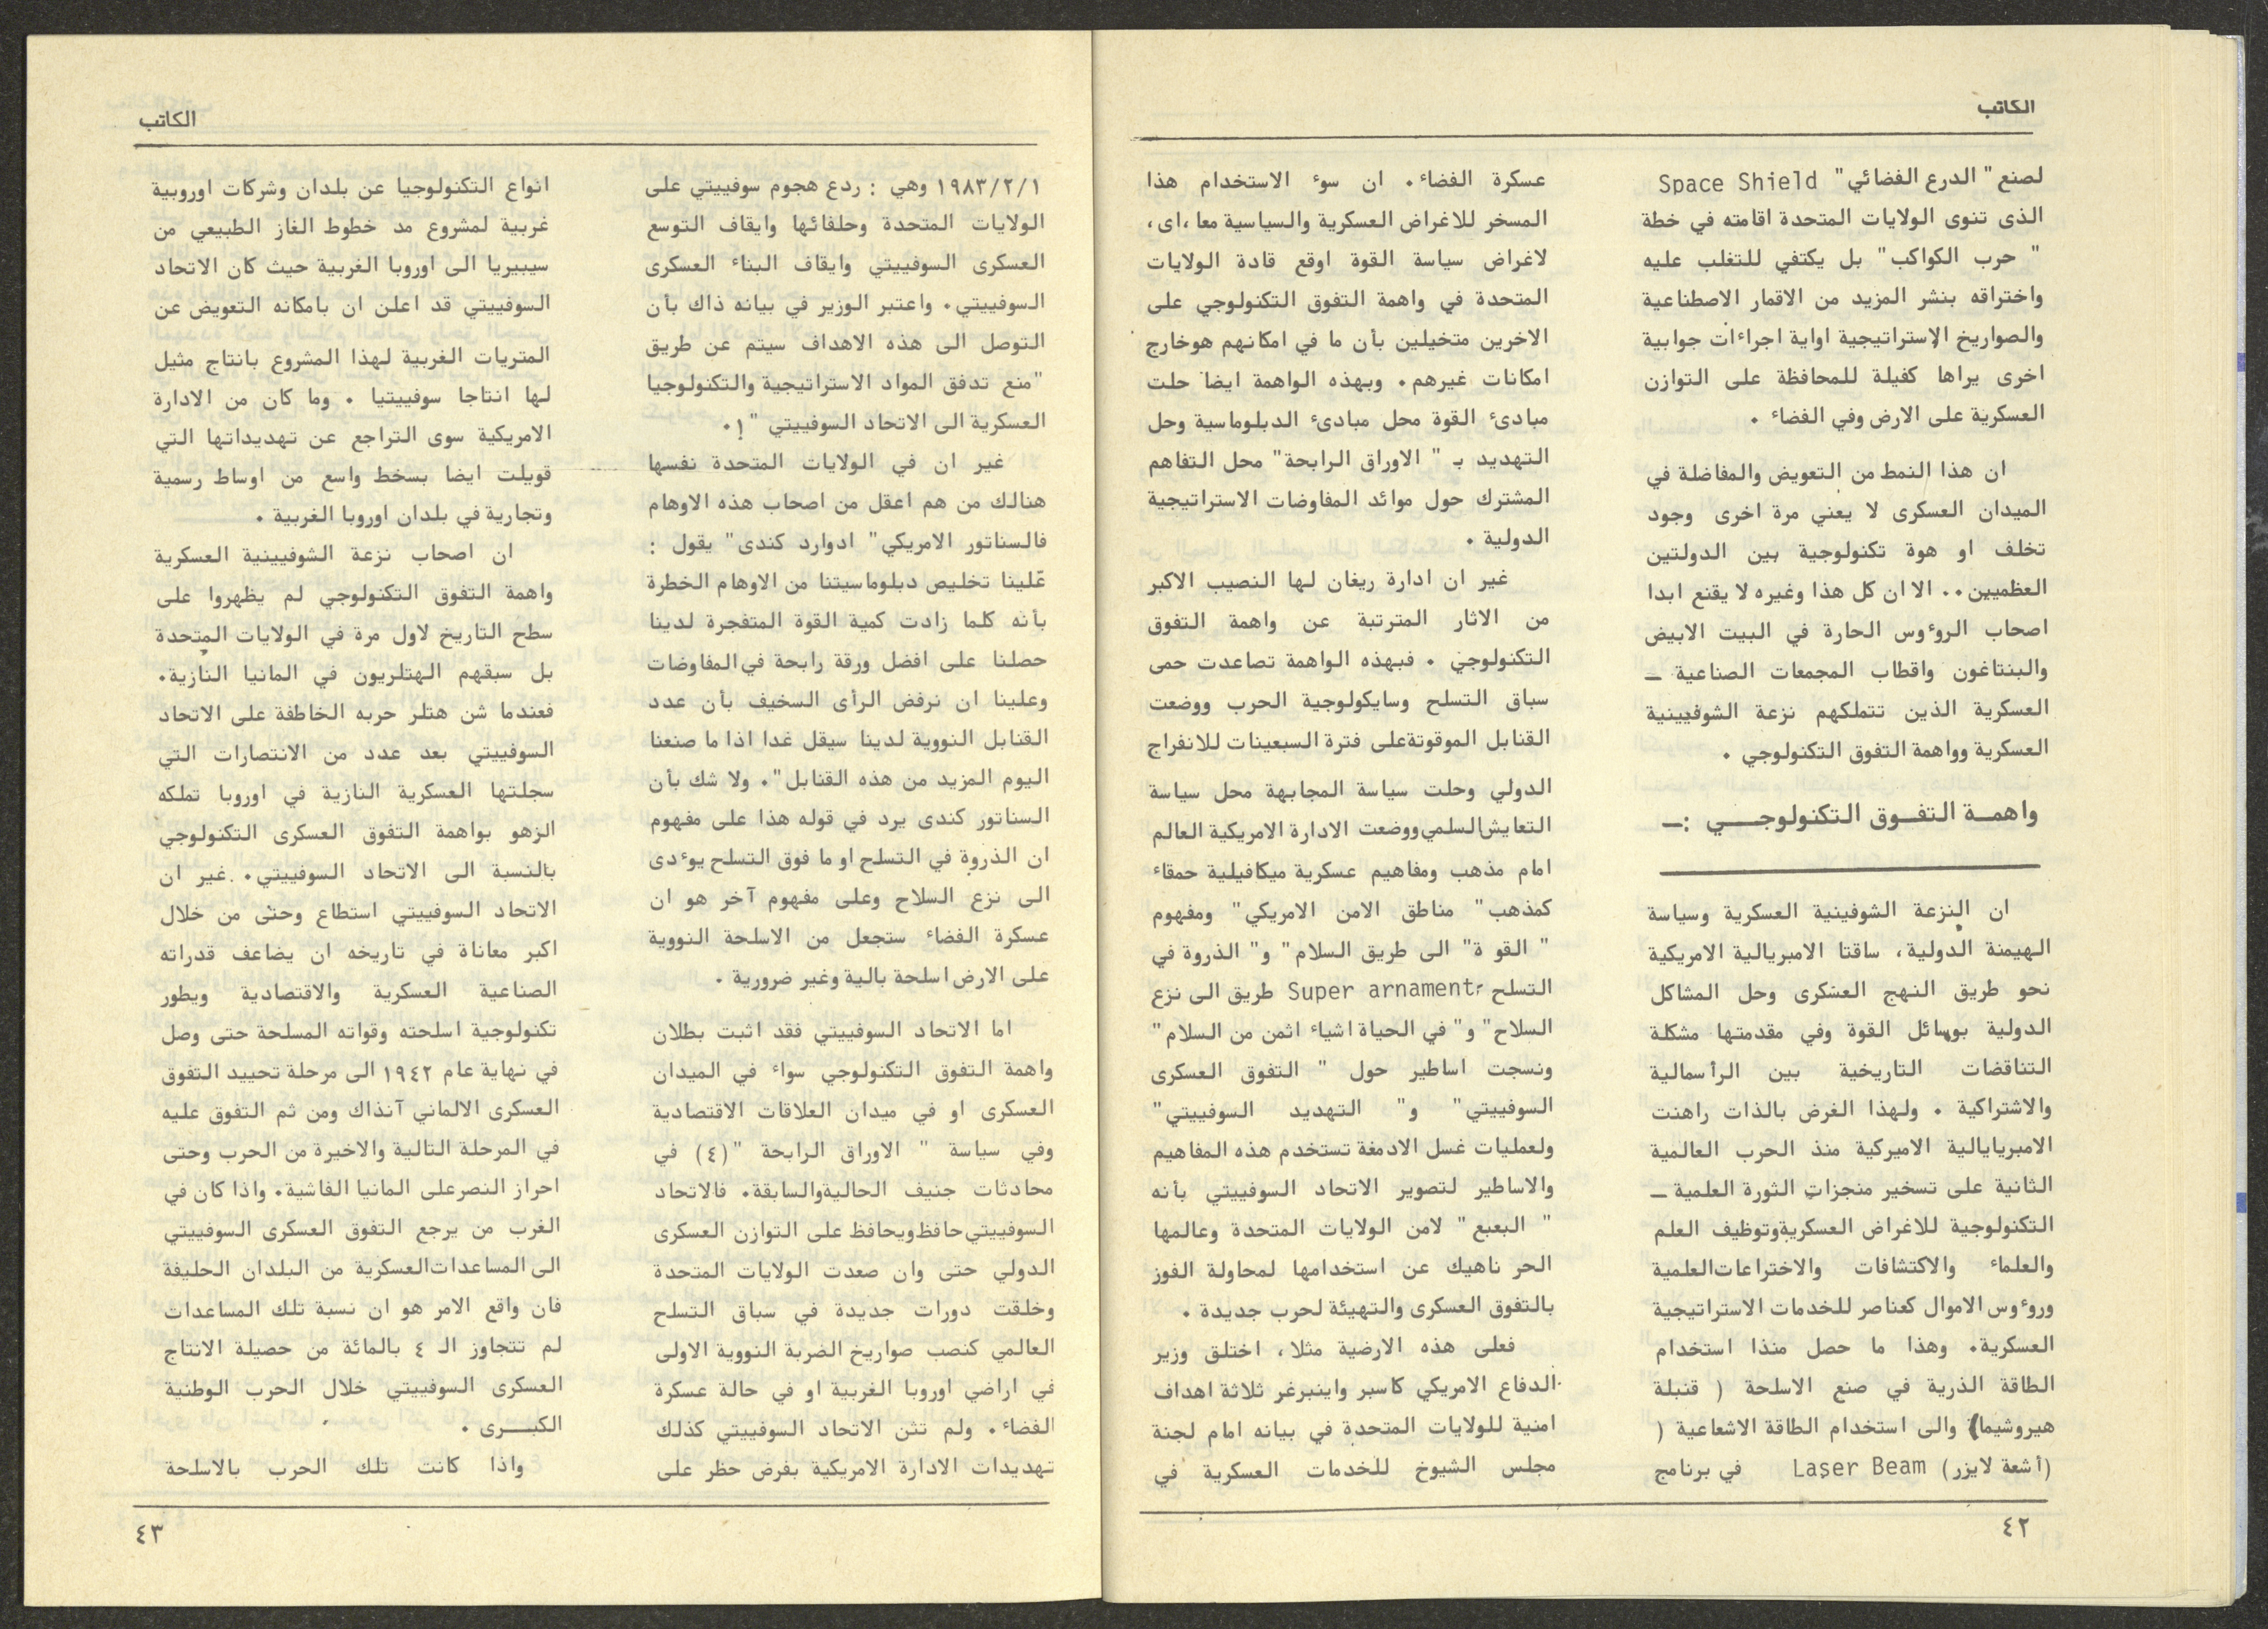 الكاتب
لصنع " الدرع الفضائي " Space Shield
الذى تنوى الولايات المتحدة اقامته في خطة
" حرب الكواكب " بل يكتفي للتغلب عليه
واختراقه بنشر المزيد من الاقمار الاصطناعية
والصواريخ الاستراتيجية اواية اجراءات جوابية
اخرى يراها كفيلة للمحافظة على التوازن
العسكرية على الارض وفي الفضاء .
ان هذا النمط من التعويض والمفاضلة في
الميدان العسكرى لا يعني مرة اخرى وجود
تخلف او هوة تكنولوجية بين الدولتين
العظميين .. الا ان كل هذا وغيره لا يقنع ابدا
اصحاب الروءوس الحارة في البيت الابيض
والبنتاغون واقطاب المجمعات الصناعية ـ
العسكرية الذين تتملكهم نزعة الشوفينية
العسكرية وواهمة التفوق التكنولوجي .
واهمــة التفــوق التكنولوجـــي :ـ
ان النزعة الشوفينية العسكرية وسياسة
الهيمنة الدولية، ساقتا الامبريالية الامريكية
نحو طريق النهج العسكرى وحل المشاكل
الدولية بوسائل القوة وفي مقدمتها مشكلة
التناقضات التاريخية بين الرأسمالية
والاشتراكية . ولهذا الغرض بالذات راهنت
الامبريايالية الاميركية منذ الحرب العالمية
الثانية على تسخير منجزات الثورة العلمية ـ
التكنولوجية للاغراض العسكرية وتوظيف العلم
والعلماء والاكتشافات والاختراعات العلمية
وروءوس الاموال كعناصر للخدمات الاستراتيجية
العسكرية. وهذا ما حصل منذا استخدام
الطاقة الذرية في صنع الاسلحة ( قنبلة
هيروشيما) والى استخدام الطاقة الاشعاعية (
(أشعة لايزر) Laser Beam في برنامج
عسكرة الفضاء . ان سوء الاستخدام هذا
المسخر للاغراض العسكرية والسياسية معا ،اى،
لاغراض سياسة القوة اوقع قادة الولايات
المتحدة في واهمة التفوق التكنولوجي على
الاخرين متخيلين بأن ما في امكانهم هوخارج
امكانات غيرهم. وبهذه الواهمة ايضا حلت
مبادىء القوة محل مبادىء الدبلوماسية وحل
التهديد بـ " الاوراق الرابحة" محل التفاهم
المشترك حول موائد المفاوضات الاستراتيجية
الدولية .
غير ان ادارة ريغان لها النصيب الاكبر
من الاثار المترتبة عن واهمة التفوق
التكنولوجي . فبهذه الواهمة تصاعدت حمى
سباق التسلح وسايكولوجية الحرب ووضعت
القنابل الموقوتةعلى فترة السبعينات للانفراج
الدولي وحلت سياسة المجابهة محل سياسة
التعايش السلمي ووضعت الادارة الامريكية العالم
امام مذهب ومفاهيم عسكرية ميكافيلية حمقاء
كمذهب " مناطق الامن الامريكي " ومفهوم
" القو ة" الى طريق السلام " و" الذروة في
التسلح Super arnament طريق الى نزع
السلاح " و" في الحياة اشياء اثمن من السلام "
ونسجت اساطير حول " التفوق العسكرى
السوفييتي" و" التهديد السوفييتي"
ولعمليات غسل الادمغة تستخدم هذه المفاهيم
والاساطير لتصوير الاتحاد السوفييتي بأنه
" البعبع " لامن الولايات المتحدة وعالمها
الحر ناهيك عن استخدامها لمحاولة الفوز
بالتفوق العسكرى والتهيئة لحرب جديدة .
فعلى هذه الارضية مثلا، اختلق وزير
الدفاع الامريكي كاسبر واينبرغر ثلاثة اهداف
امنية للولايات المتحدة في بيانه امام لجنة
مجلس الشيوخ للخدمات العسكرية في
٤٢
الكاتب
١٩٨٣/٢/١ وهي : ردع هجوم سوفييتي على
الولايات المتحدة وحلفائها وايقاف التوسع
العسكرى السوفييتي وايقاف البناء العسكرى
السوفييتي. واعتبر الوزير في بيانه ذاك بأن
التوصل الى هذه الاهداف سيتم عن طريق
"منع تدفق المواد الاستراتيجية والتكنولوجيا
العسكرية الى الاتحاد السوفييتي "! .
غير ان في الولايات المتحدة نفسها
هنالك من هم اعقل من اصحاب هذه الاوهام
فالسناتور الامريكي " ادوارد كندى" يقول :
علينا تخليص دبلوماسيتنا من الاوهام الخطرة
بأنه كلما زادت كمية القوة المتفجرة لدينا
حصلنا على افضل ورقة رابحة في المفاوضات
وعلينا ان نرفض الرأى السخيف بأن عدد
القنابل النووية لدينا سيقل غدا اذا ما صنعنا
اليوم المزيد من هذه القنابل ". ولا شك بأن
السناتور كندى يرد في قوله هذا على مفهوم
ان الذروة في التسلح او ما فوق التسلح يوءدى
الى نزع السلاح وعلى مفهوم آخر هو ان
عسكرة الفضاء ستجعل من الاسلحة النووية
على الارض اسلحة بالية وغير ضرورية .
اما الاتحاد السوفييتي فقد اثبت بطلان
واهمة التفوق التكنولوجي سواء في الميدان
العسكرى او في ميدان العلاقات الاقتصادية
وفي سياسة " الاوراق الرابحة "(٤) في
محادثات جنيف الحالية والسابقة. فالاتحاد
السوفييتي حافظ ويحافظ على التوازن العسكرى
الدولي حتى وان صعدت الولايات المتحدة
وخلقت دورات جديدة في سباق التسلح
العالمي كنصب صواريخ الضربة النووية الاولى
في اراضي اوروبا الغربية او في حالة عسكرة
الفضاء . ولم تثن الاتحاد السوفييتي كذلك
تهديدات الادارة الامريكية بفرض حظر على
انواع التكنولوجيا عن بلدان وشركات اوروبية
غربية لمشروع مد خطوط الغاز الطبيعي من
سيبيريا الى اوروبا الغربية حيث كان الاتحاد
السوفييتي قد اعلن ان بامكانه التعويض عن
المتريات الغربية لهذا المشروع بانتاج مثيل
لها انتاجا سوفييتيا . وما كان من الادارة
الامريكية سوى التراجع عن تهديداتها التي
قوبلت ايضا بسخط واسع من اوساط رسمية
وتجارية في بلدان اوروبا الغربية .
ان اصحاب نزعة الشوفيينية العسكرية
واهمة التفوق التكنولوجي لم يظهروا على
سطح التاريخ لاول مرة في الولايات المتحدة
بل سبقهم الهتلريون في المانيا النازية.
فعندما شن هتلر حربه الخاطفة على الاتحاد
السوفييتي بعد عدد من الانتصارات التي
سجلتها العسكرية النازية في اوروبا تملكه
الزهو بواهمة التفوق العسكرى التكنولوجي
بالنسبة الى الاتحاد السوفييتي. غير ان
الاتحاد السوفييتي استطاع وحتى من خلال
اكبر معاناة في تاريخه ان يضاعف قدراته
الصناعية العسكرية والاقتصادية ويطور
تكنولوجية اسلحته وقواته المسلحة حتى وصل
في نهاية عام ١٩٤٢ الى مرحلة تحييد التفوق
العسكرى الالماني آنذاك ومن ثم التفوق عليه
في المرحلة التالية والاخيرة من الحرب وحتى
احراز النصر على المانيا الفاشية. واذا كان في
الغرب من يرجع التفوق العسكرى السوفييتي
الى المساعدات العسكرية من البلدان الحليفة
فان واقع الامر هو ان نسبة تلك المساعدات
لم تتجاوز الـ ٤ بالمائة من حصيلة الانتاج
العسكرى السوفييتي خلال الحرب الوطنية
الكبـــرى .
واذا كانت تلك الحرب بالاسلحة
٤٣